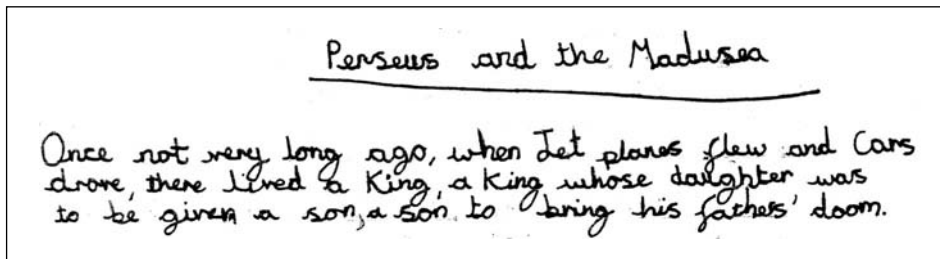 Perseus and the Madusea
Once not very long ago, when Jet planes flew and Cars
drove, there lived a King, a King whose daughter was
to be given a son, a son, to bring his fathers' doom.